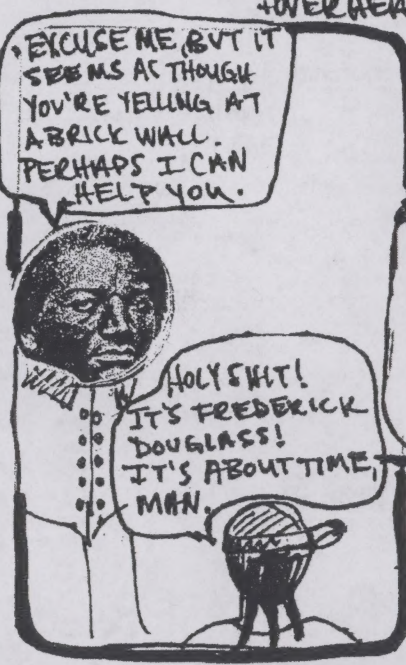 +OVERHEA
EXCUSE ME, BUT IT
SEEMS AS THOUGH
YOU'RE YELLING AT
A BRICK WALL.
PERHAPS I CAN
HELP YOU.
HOLY SHIT!
IT'S FREDERICK
DOUGLASS!
IT'S ABOUT TIME,
MAN.